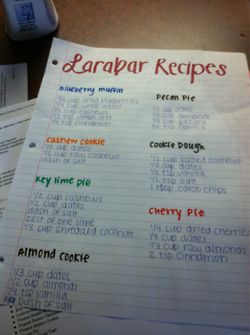 Larabar Recipes
blueberry muffin
1/4 cup dried blueberries
1/4 cup dates
1/2 cup cashews
1/2 tsp lemon zest
1/4 tsp cinnamon
cashew cookie
1/2 cup dates
1/2 cup raw cashews
dash of salt
key lime pie
1/2 cup cashews
1/2 cup dates
dash of salt
zest of one lime
1/3 cup shredded coconut
Almond Cookie
1/3 cup dates
1/2 cup almonds
1/4 tsp vanilla
dash of salt
Pecan Pie
1/2 cup dates
1/4 cup almonds
1/4 cup pecans
1/4 tsp vanilla
Cookie Dough
1/2 cup salted cashews
1/3 cup dates
1/2 tsp vanilla
1/2 tsp salt
1 tbsp carob chips
Cherry Pie
1/4 cup dried cherries
1/4 cup dates
1/3 cup raw almonds
2 tsp cinnamon